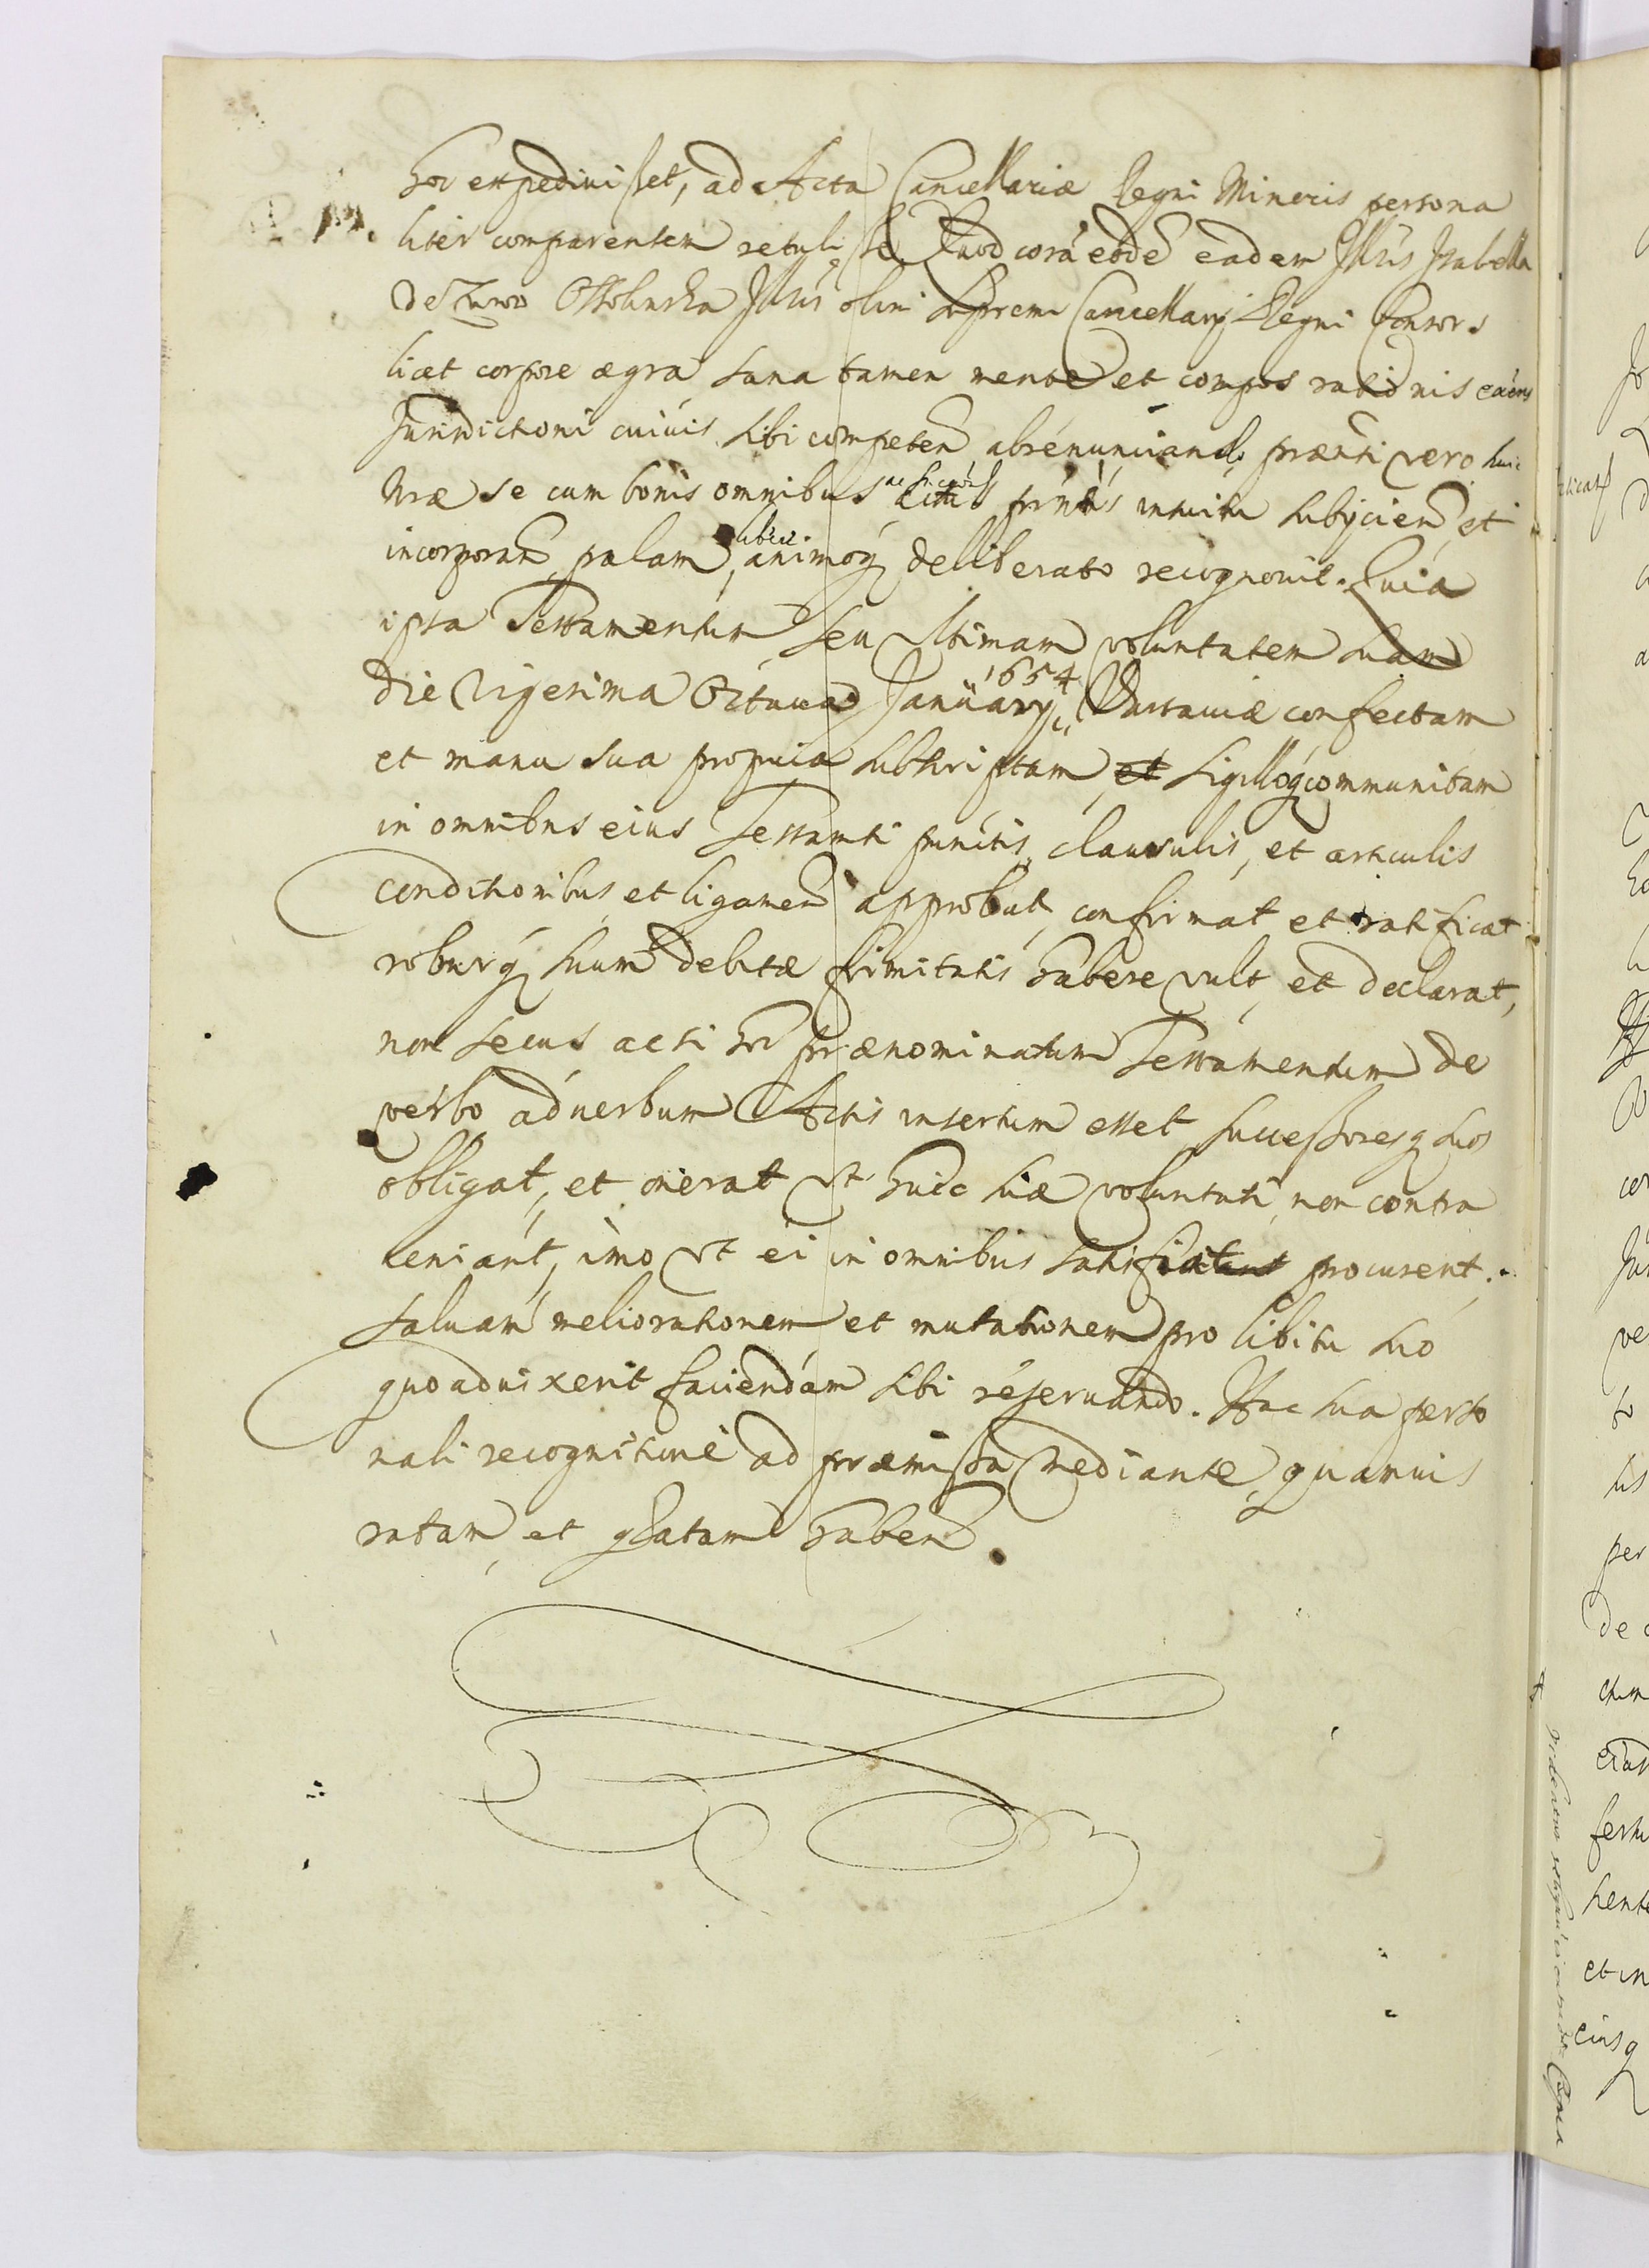 hoc expedivisset, ad Acta Cancellariæ Regni Minoris persona
liter comparentem retulisse Quod corá eodē eadem Illris Isabella
de Żurow Ossolinska Illris olim supremi Cancellarij Regni Consors
licet corpore ægra sana tamen mente et compos rationis
Jurisdictioni cuiuis sibi competen̄ abrenunciando præsnti vero huic
Nræ se cum bonis omnibus intuitu subijcien̄ et
incorporan̄ palam, libere animoq deliberato recognouit. Quia
ipsa Testamentum seu vltimam voluntatem suam
die Vigesima Octaua January 1654 Varsauiæ confectam
et manu sua propria subscriptam et sigilloq communitam
in omnibus eius Testamti punctis, clausulis, et articulis
conditionibus et ligamen̄ approbat, confirmat et ratificat
roburq suum debitæ firmitatis habere vult, et declarat,
non secus ac si hoc prænominatum Testamentum de
verbo ad uerbum Actis insertum esset, successoresq suos
obligat, et onerat vt huic suæ voluntati, non contra
ueniant, imo vt ei in omnibus procurent.
saluam meliorationem et mutationem pro libitu suo
quoad uixerit faciendam sibi reseruando. Hac sua perso
nali recognitione ad præmissa mediante, quamuis
ratam et gratam haben̄.